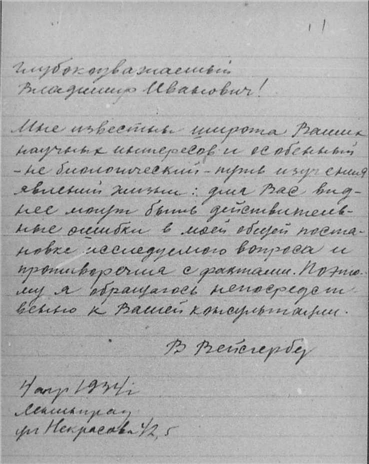 11
Глубокоуважаемый
Владимир Иванович!
Мне известны широта Ваших
научных интересов и особенный
- не биологический - путь изучения
явлений жизни: для Вас вид-
нее могут быть действитель-
ные ошибки в моей общей поста-
новке исследуемого вопроса и
противоречия с фактами. Поэто-
му я обращаюсь непосредст-
венно к Вашей консультации.
В Вейсгербер
4 апр 1934г
Ленинград
ул Некрасова 42, 5